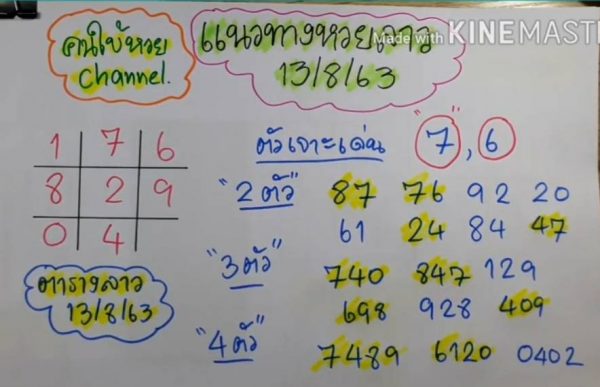 คนใบ้หวย
Channel.
แนวทางหวยลาว
13/8/63
Made with KINEMAST
1 7 6
8 2 9
0 4
ตารางลาว
13/8/63
ตัวเจาะเด่น "7", 6
"2 ตัว" 87 76 92 20
61 24 84 47
"3 ตัว" 740 847 129
698 928 409
"4 ตัว" 7489 6120 0402